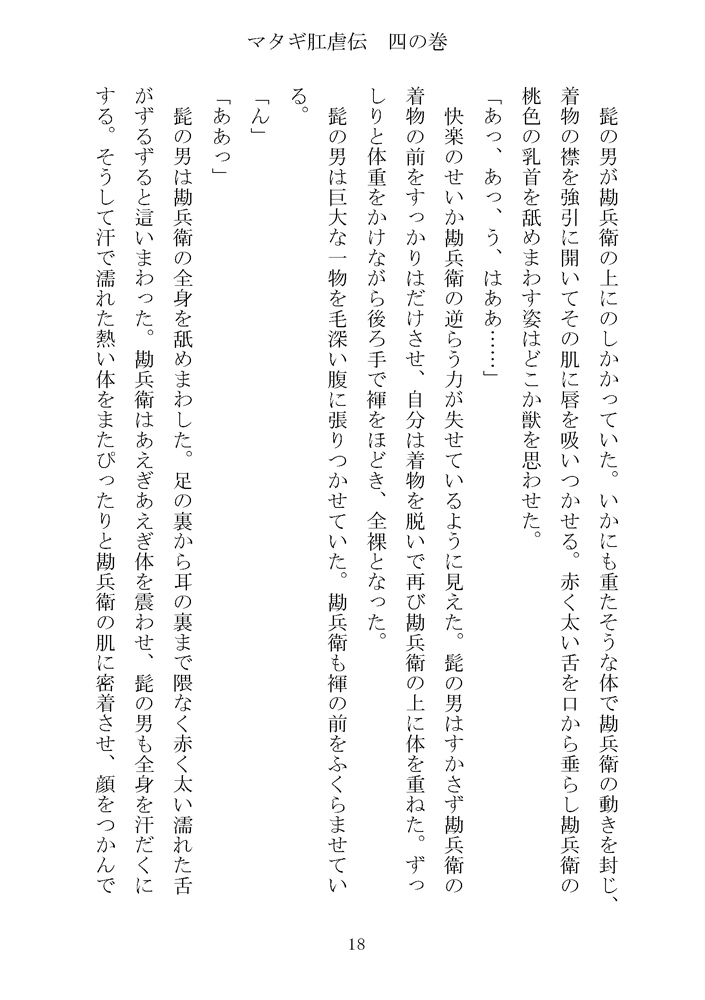 マタギ肛虐伝　四の巻
　髭の男が勘兵衛の上にのしかかっていた。いかにも重たそうな体で勘兵衛の動きを封じ、
着物の襟を強引に開いてその肌に唇を吸いつかせる。赤く太い舌を口から垂らし勘兵衛の
桃色の乳首を舐めまわす姿はどこか獣を思わせた。
「あっ、あっ、う、はああ……」
　快楽のせいか勘兵衛の逆らう力が失せているように見えた。髭の男はすかさず勘兵衛の
着物の前をすっかりはだけさせ、自分は着物を脱いで再び勘兵衛の上に体を重ねた。ずっ
しりと体重をかけながら後ろ手で褌をほどき、全裸となった。
　髭の男は巨大な一物を毛深い腹に張りつかせていた。勘兵衛も褌の前をふくらませてい
る。
「ん」
「ああっ」
　髭の男は勘兵衛の全身を舐めまわした。足の裏から耳の裏まで隈なく赤く太い濡れた舌
がずるずると這いまわった。勘兵衛はあえぎあえぎ体を震わせ、髭の男も全身を汗だくに
する。そうして汗で濡れた熱い体をまたぴったりと勘兵衛の肌に密着させ、顔をつかんで
18